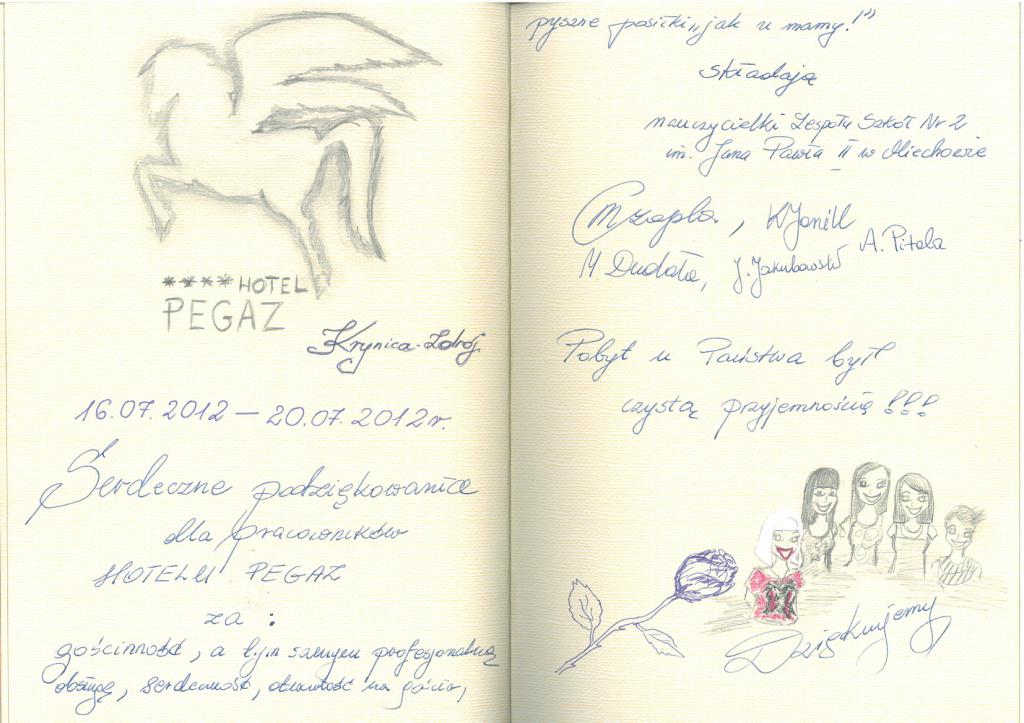 **** HOTEL
PEGAZ
Krynica-Zdrój
16.07.2012 – 20.07.2012r.
Serdeczne podziękowanice
dla pracowników
HOTELU PEGAZ
za :
gościnność, a tym samym profesjonalną
obsługę, serdeczność, otwartość na gościa,
pyszne posiłki „jak u mamy!"
składają
nauczycielki Zespołu Szkół Nr 2
im. Jana Pawła II w Miechowie
MCzapla, K Janill
A. Pitala
M Dudała, J. Jakubowski
Pobyt u Państwa był
czystą przyjemnością !!!
Dziękujemy